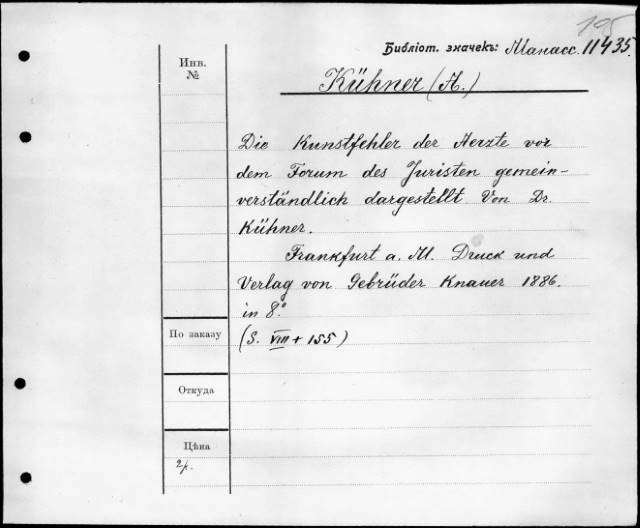 195
Библіот. значекъ: Манасс. 11435.
Инв.
№
Kühner (A.)
Die Kunstfehler der Aerzte vor
dem Forum des Juristen gemein-
verständlich dargestellt Von Dr.
Kühner.
Frankfurt a. M. Druck und
Verlag von Gebrüder Knauer 1886.
in 8.°
По заказу
(S. VIII + 155)
Откуда
Цѣна
2р.